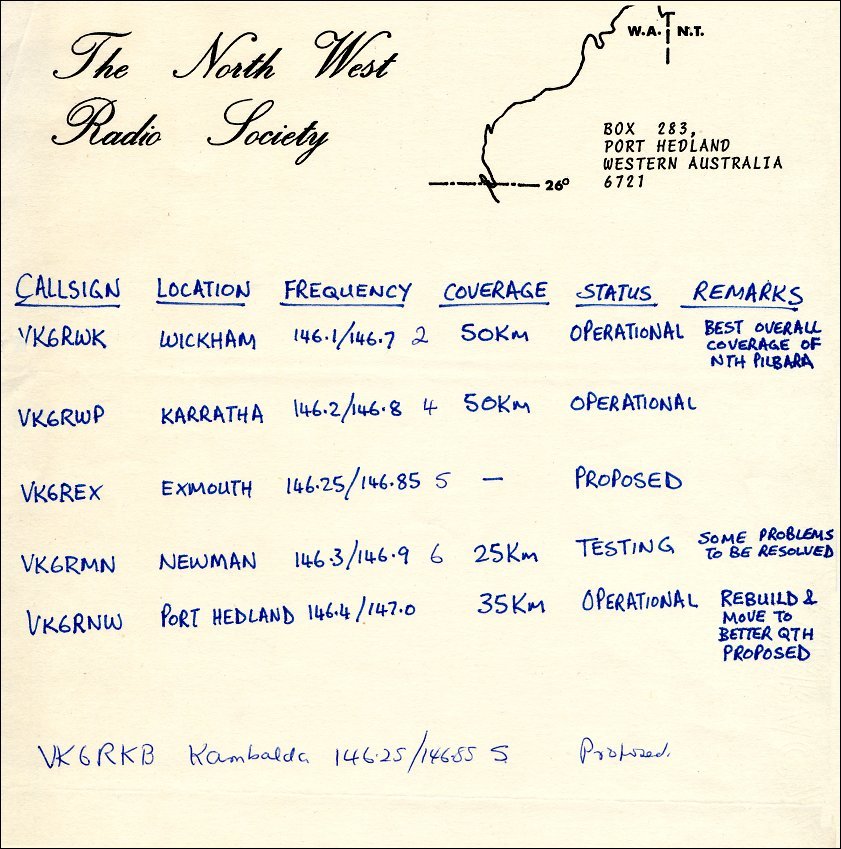 The North West
Radio Society
W.A. N.T.
BOX 283,
PORT HEDLAND
WESTERN AUSTRALIA
26° 6721
CALLSIGN LOCATION FREQUENCY COVERAGE STATUS REMARKS
VK6RWK WICKHAM 146.1/146.7 2 50KM OPERATIONAL BEST OVERALL
COVERAGE OF
NTH PILBARA
VK6RWP KARRATHA 146.2/146.8 4 50KM OPERATIONAL
VK6REX EXMOUTH 146.25/146.85 5 — PROPOSED
VK6RMN NEWMAN 146.3/146.9 6 25KM TESTING SOME PROBLEMS
TO BE RESOLVED
VK6RNW PORT HEDLAND 146.4/147.0 35KM OPERATIONAL REBUILD &
MOVE TO
BETTER QTH
PROPOSED
VK6RKB Kambalda 146.25/146.85 5 Proposed.